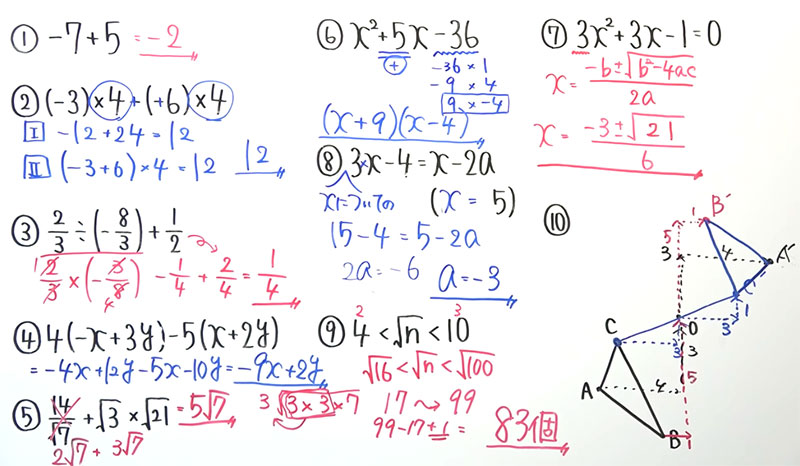 ① -7+5 = -2
② (-3)×4+(+6)×4
Ⅰ -12+24=12
Ⅱ (-3+6)×4=12 12
③ 2/3÷(-8/3)+1/2
1 2/3×(-3/8) 4 -1/4+2/4=1/4
④ 4(-x+3y)-5(x+2y)
=-4x+12y-5x-10y=-9x+2y
⑤ 14/√7+√3×√21=5√7
2√7+3√7
3√3×3×7
⑥ x²+5x-36
+
-36×1
-9×4
9×-4
(x+9)(x-4)
⑧ 3×x-4=x-2a
xについての (x=5)
15-4=5-2a
2a=-6 a=-3
⑨ 4<√n<10
2 3
√16<√n<√100
17〜99
99-17+1= 83個
⑦ 3x²+3x-1=0
x=-b±√b²-4ac/2a
x=-3±√21/6
⑩
1 B′
5
3 4 A′
C′
0 3 1
C 3 3
A 4 5
B 1